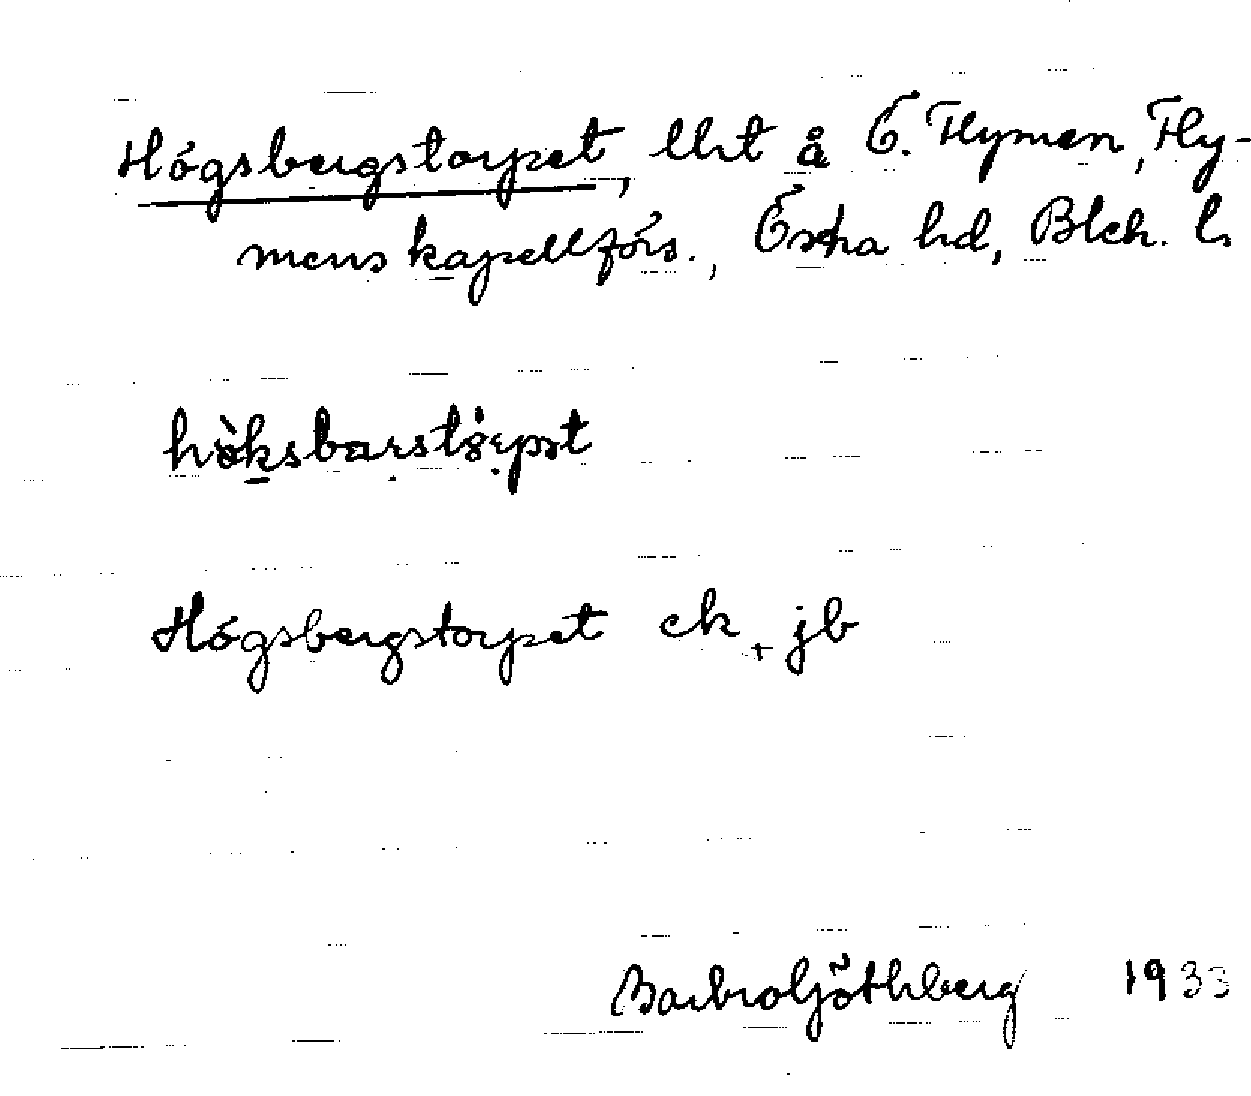 Högsbergstorpet, lht å Ö. Flymen, Fly-
mens kapellförs., Östra hd, Blek. l.
Högsbergstorpet ek + jb
Barbro Göthberg 1933